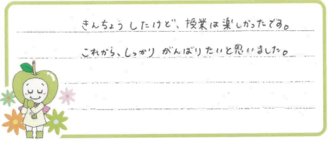 きんちょうしたけど、授業は楽しかったです。
これから、しっかりがんばりたいと思いました。